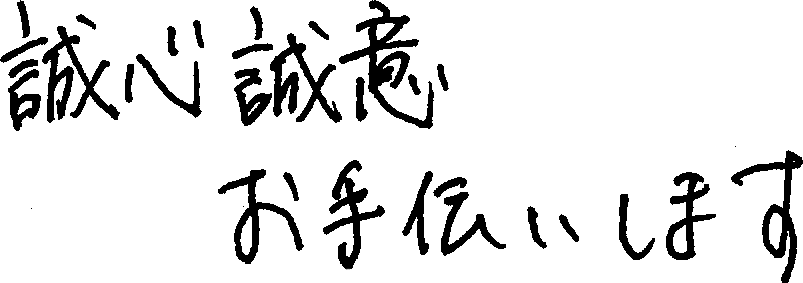 誠心誠意
お手伝いします